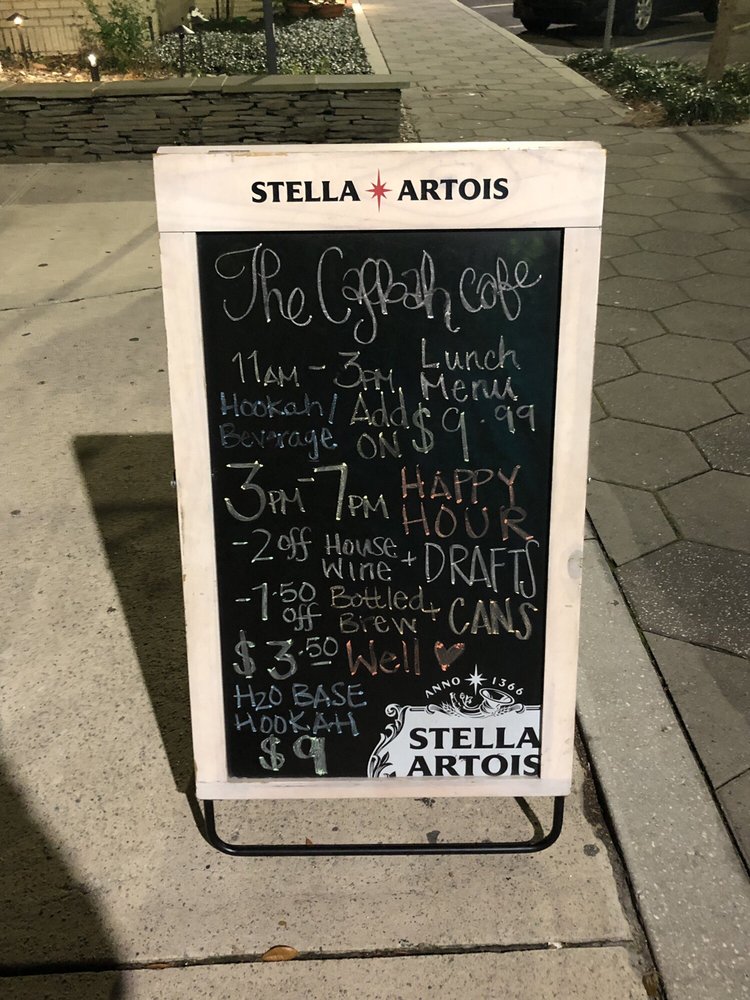 STELLA ARTOIS
The Casbah cafe
11AM - 3PM Lunch Menu
Hookah/ Beverage Add ON $9.99
3PM - 7PM HAPPY HOUR
-2 off House Wine + DRAFTS
-1.50 off Bottled Brew + CANS
$3.50 Well
H2O BASE
HOOKAH
$9
ANNO 1366
STELLA
ARTOIS